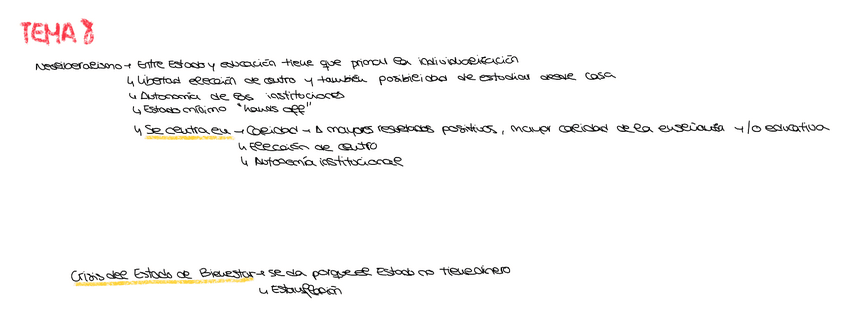 TEMA 8
Neoliberalismo → Entre Estado y educación tiene que primar la individualización
↳ Libertad elección de centro y también posibilidad de estudiar desde casa
↳ Autonomía de las instituciones
↳ Estado mínimo "hands off"
↳ Se centra en → Calidad → A mayores resultados positivos, mayor calidad de la enseñanza y/o educativa
↳ Elección de centro
↳ Autonomía institucional
Crisis del Estado de Bienestar → se da porque el Estado no tiene dinero
↳ Estanflación